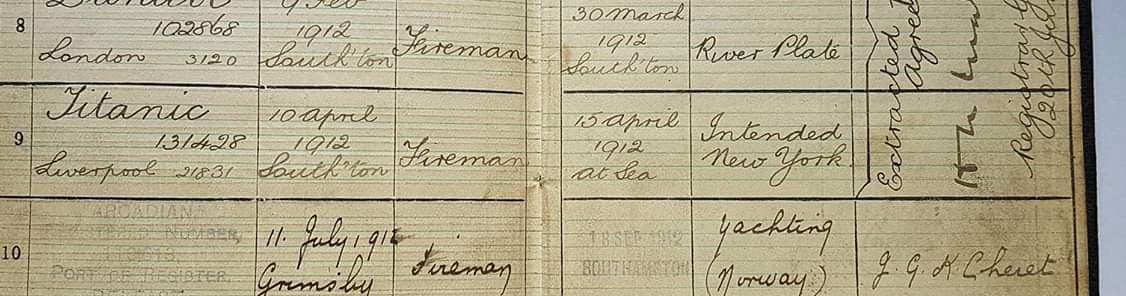 9 Feb
30 March
8
102868
1912
Fireman
1912
River Plate
London 3120
South'ton
South'ton
Extracted
Agree
Registrar G
20th July
Titanic
10 April
15 April
Intended
9
131428
1912
Fireman
1912
New York
Liverpool 21831
South'ton
at Sea
ARCADIAN
NUMBER,
11. July, 191
18 SEP 1912
Yachting
10
Fireman
J G K Cheret
PORT OF REGISTER,
Grimsby
SOUTHAMPTON
(Norway)